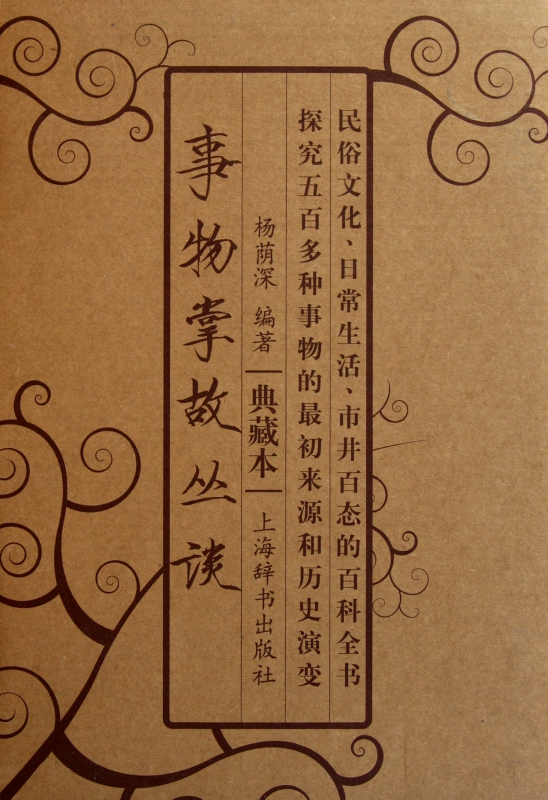 民俗文化、日常生活、市井百态的百科全书
探究五百多种事物的最初来源和历史演变
杨荫深 编著
典藏本
上海辞书出版社
事物掌故丛谈